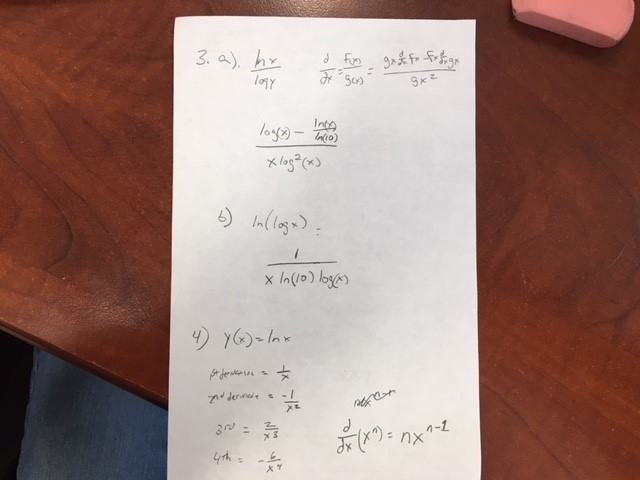 3. a). ln x / log y    d/dx = f(x)/g(x) = gx d/dx fx - fx d/dx gx / gx²
log(x) - ln(x)/ln(10) / x log²(x)
b) ln(log x) =
1 / x ln(10) log(x)
4) y(x) = ln x
1st derivative = 1/x
2nd derivative = -1/x²
3rd = 2/x³
4th = -6/x⁴
d/dx (xⁿ) = nxⁿ⁻¹